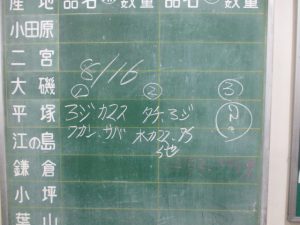 産地 品名 数量 品名 数量
小田原
二宮
8/16
大磯 ① ② ③
平塚 ろジカマス タチ.ろジ
江の島 フカン.サバ 水カマス.アジ
鎌倉 他
小坪
葉山